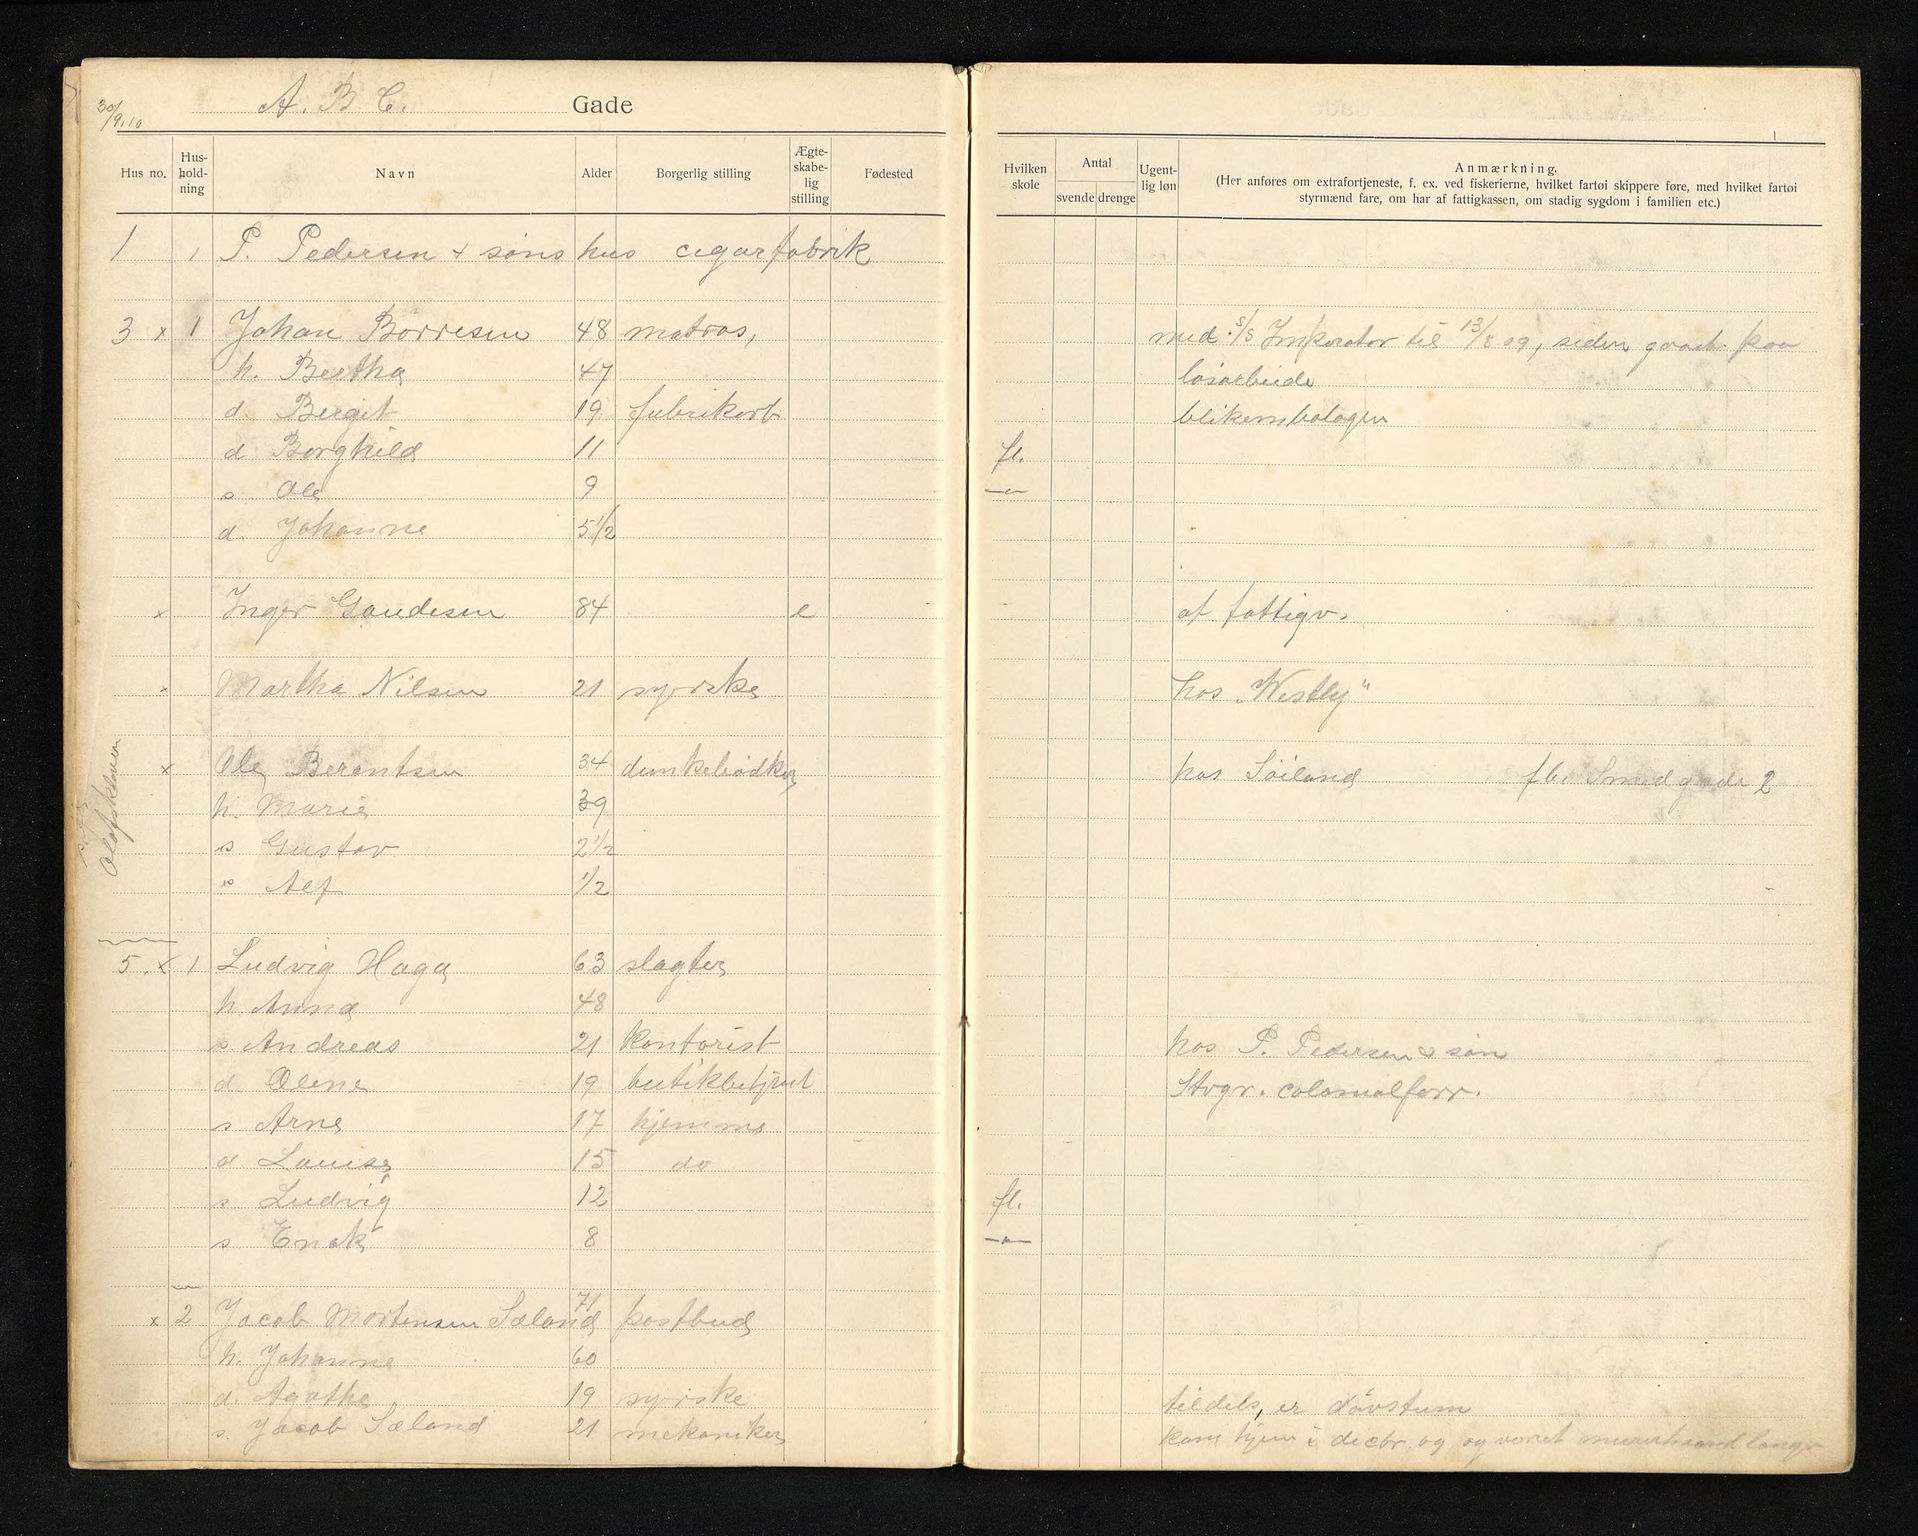 30/9.10 A. B. C. Gade
Hus no. Hus-hold-ning Navn Alder Borgerlig stilling Ægte-skabe-lig stilling Fødested Hvilken skole Antal svende drenge Ugent-lig løn Anmærkning.
(Her anføres om extrafortjeneste, f. ex. ved fiskerierne, hvilket fartøi skippere føre, med hvilket fartøi
styrmænd fare, om har af fattigkassen, om stadig sygdom i familien etc.)
1 1 P. Pedersen + søns hus cigarfabrik
3 x 1 Johan Børresen 48 matros, med s/s Imperator til 13/8 09, siden gaaet paa
h. Bertha 47 løsarbeide
d Berget 19 fabrikarb blikembalagen
d Borghild 11 fl.
s Ole 9 —"—
d. Johanne 5 1/2
x Inger Gaudesen 84 e af fattigv.
x Martha Nilsen 21 syerske hos „Westly"
x Ole Berentsen 34 dunkebødker hos Søiland fl. Smedgade 2
h. Marie 39
s Gustav 2 1/2
s Alf 1/2
Olafskleven
5. x 1 Ludvig Haga 63 slagter
h. Anna 48
s. Andreas 21 kontorist hos P. Pedersen & søn
d Olene 19 butikbetjent Stvgr. colonialforr.
s Arne 17 hjemme
d Louise 15 do
s Ludvig 12 fl.
s Enok 8 —"—
x 2 Jacob Mortensen Sæland 71 postbud
h. Johanne 60
d. Agathe 19 syerske tildels, er døvstum
s. Jacob Sæland 21 mekaniker kom hjem i decbr. og og været murerhaandlanger